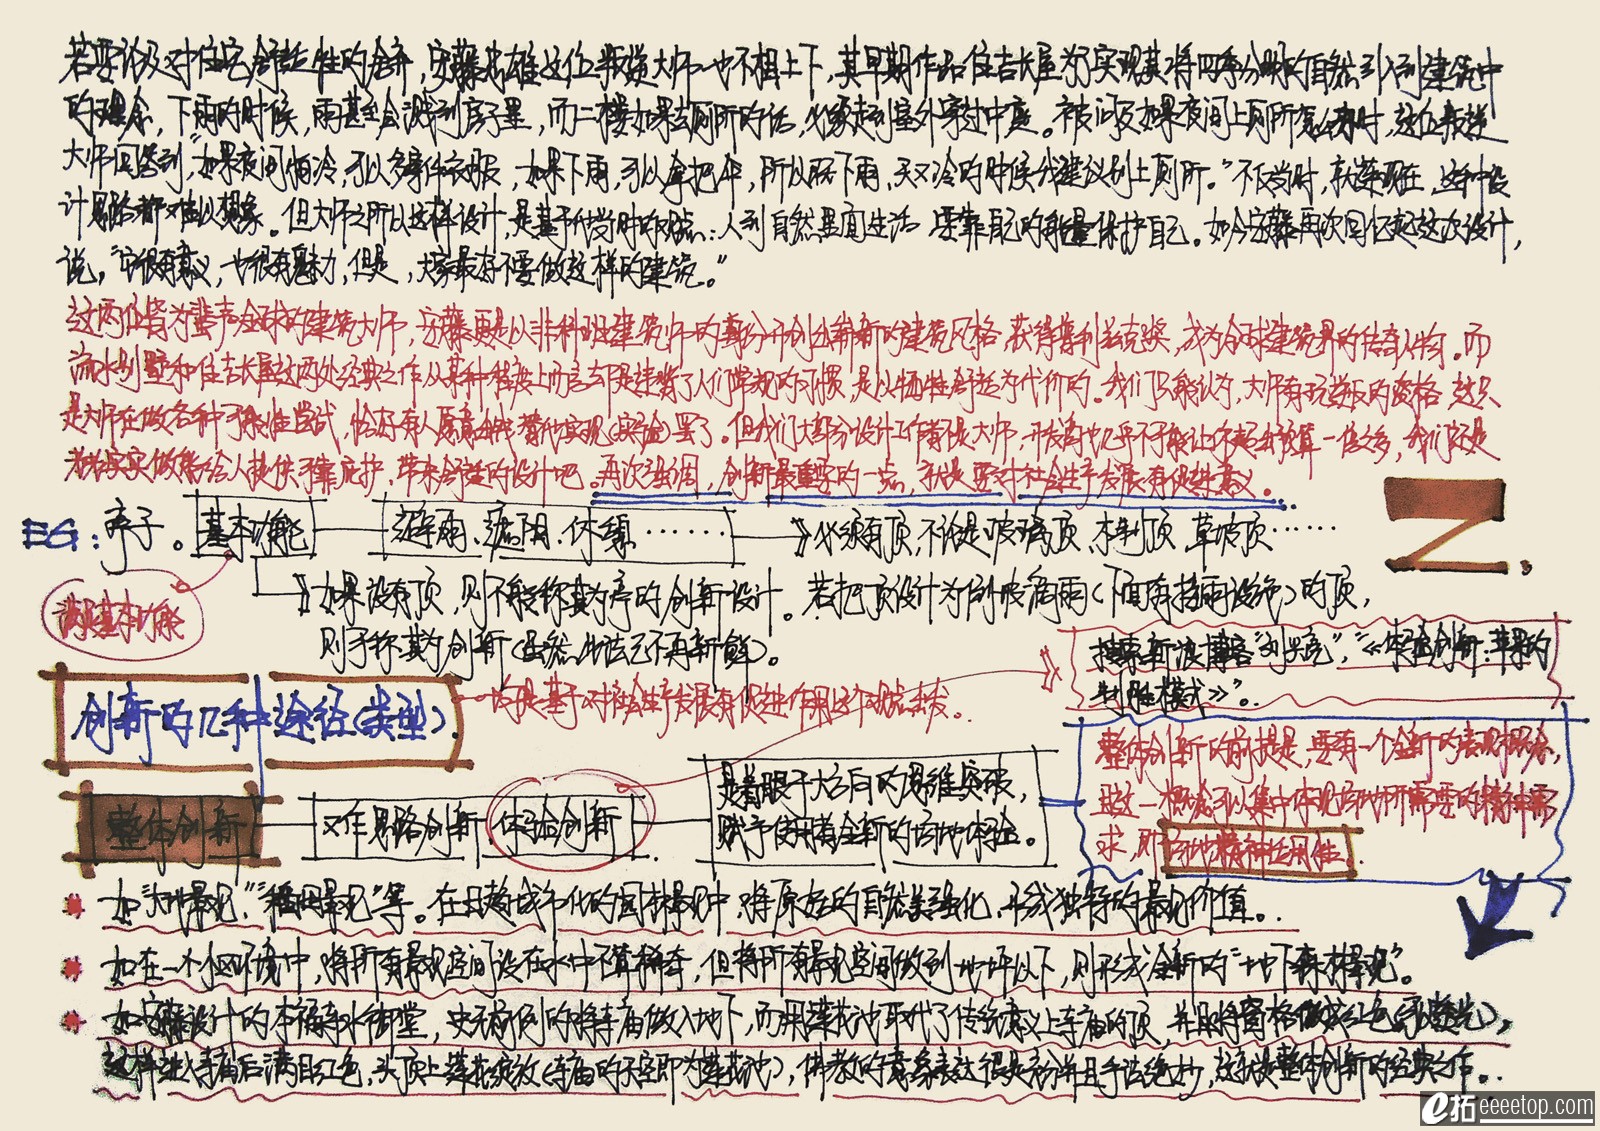 若要论及对住宅舒适性的舍弃，安藤忠雄这位叛逆大师也不相上下，其早期作品住吉长屋为了实现其将四季分明的自然引入到建筑中
的理念，下雨的时候，雨甚至会溅到房子里，而二楼如果去厕所的话，必须走到室外穿过中庭。被问及如果夜间上厕所怎么办时，这位叛逆
大师回答到"如果夜间怕冷，可以多穿件衣服，如果下雨，可以拿把伞，所以既下雨、天又冷的时候我建议别上厕所。"不仅当时，就算现在，这种设
计思路都难以想象。但大师之所以这样设计，是基于他当时的观点：人到自然里面生活 要靠自己的能量保护自己。如今安藤再次回忆起这次设计，
说，"它很有意义，也很有魅力，但是，大家最好不要做这样的建筑。"
这两位皆为蜚声全球的建筑大师，安藤更是以非科班建筑师的身分开创出崭新的建筑风格，获得普利兹克奖，成为全球建筑界的传奇人物。而
流水别墅和住吉长屋这两处经典之作从某种程度上而言却是违背了人们常规的习惯，是以牺牲舒适为代价的。我们只能认为，大师有玩逆反的资格 这只
是大师在做各种可能性尝试，恰好有人愿意替他实现(实验)罢了。但我们大部分设计工作者不是大师，开发商也几乎不可能让你超出预算一倍之多，我们还是
老老实实做能给人提供可靠庇护、带来舒适的设计吧。再次强调，创新最重要的一点，就是要对社会生产发展有促进意义。
EG：亭子。基本功能 避雨、遮阴、休憩…… 必须有顶，不论是玻璃顶、木制顶、草坡顶……
如果没有顶，则不能称其为亭的创新设计。若把顶设计为倒坡漏雨(下面有接雨设施)的顶，
满足基本功能
则可称其为创新(虽然此法已不再新鲜)。
搜索新浪博客"刘兴亮"，"《体验创新：苹果的
制胜模式》"。
创新的几种途径(类型)。
均是基于对社会生产发展有促进作用这个观点出发。
整体创新的前提是，要有一个全新的表现概念，
且这一概念可以集中体现场地所需要的精神需
求，即场地精神适用性。
整体创新 又作思路创新 体验创新。
是着眼于大方向的思维突破，
赋予使用者全新的场地体验。
如"大地景观"，"稻田景观"等。在日趋城市化的园林景观中，将原始的自然美强化，形成独特的景观价值。
如在一个小区环境中，将所有景观空间设在水中不算稀奇，但将所有景观空间做到地坪以下，则形成全新的"地下森林景观"。
如安藤设计的本福寺水御堂，史无前例的将寺庙做入地下，而用莲花池取代了传统意义上寺庙的顶，并且将窗格做成红色(可透光)，
这样进入寺庙后满目红色，头顶上莲花绽放(寺庙的天空即为莲花池)，佛教的意象表达很是充分并且手法绝妙，这就是整体创新的经典之作。
e拓 eeeetop.com